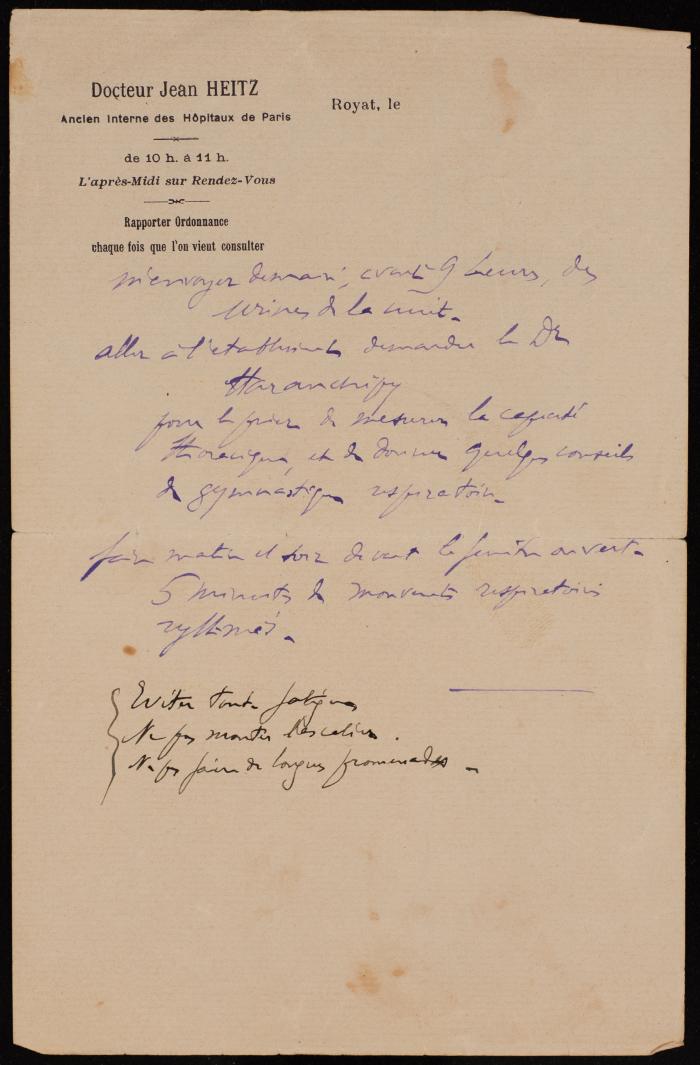 Docteur Jean HEITZ
Ancien Interne des Hôpitaux de Paris
de 10 h. à 11 h.
L'après-Midi sur Rendez-Vous
Rapporter Ordonnance
chaque fois que l'on vient consulter
Royat, le
m'envoyer demain, avant 9 heures, des
urines de la nuit.
aller à l'etablissement demander le Dr
pour le prier de mesurer la capacité
thoracique, et de donner quelques conseils
de gymnastique respiratoire.
faire matin et soir devant la fenêtre ouverte
5 minutes de mouvements respiratoires
rythmés.
Eviter toute fatigue
Ne pas monter l'escalier.
Ne pas faire de longues promenades.